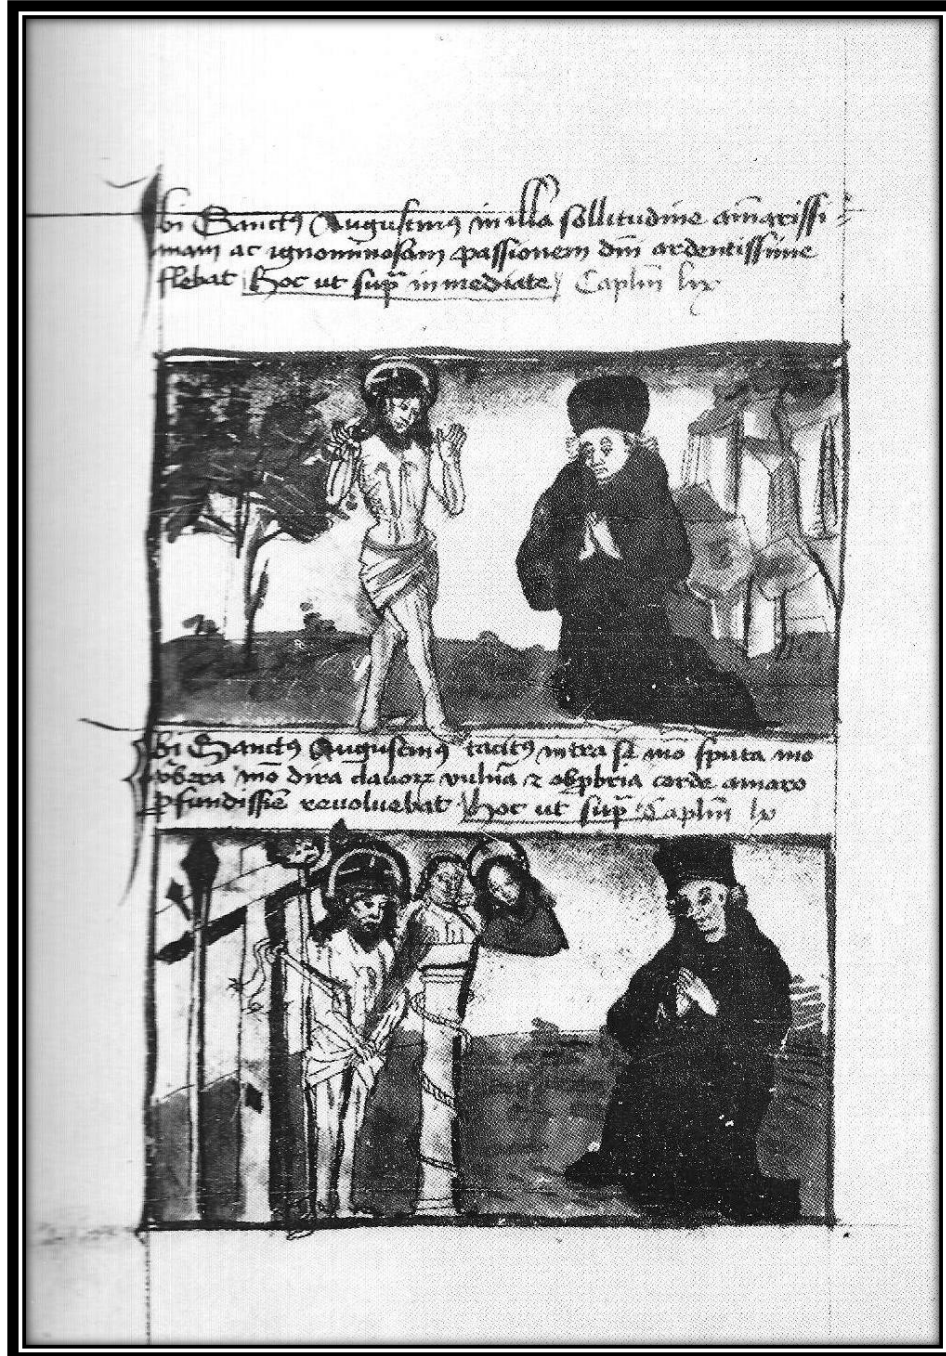 Ubi Sanctus Augustinus in illa sollitudine amarissi
mam ac ignominiosam passionem dni ardentissime
flebat Hoc ut supra inmediate Caplm lix
Ubi Sanctus Augustinus tacitus intra se mo sputa mo
vbera mo dira clavorum vulna et obprbria corde amaro
profundissie revoluebat Hoc ut supra Caplm lx